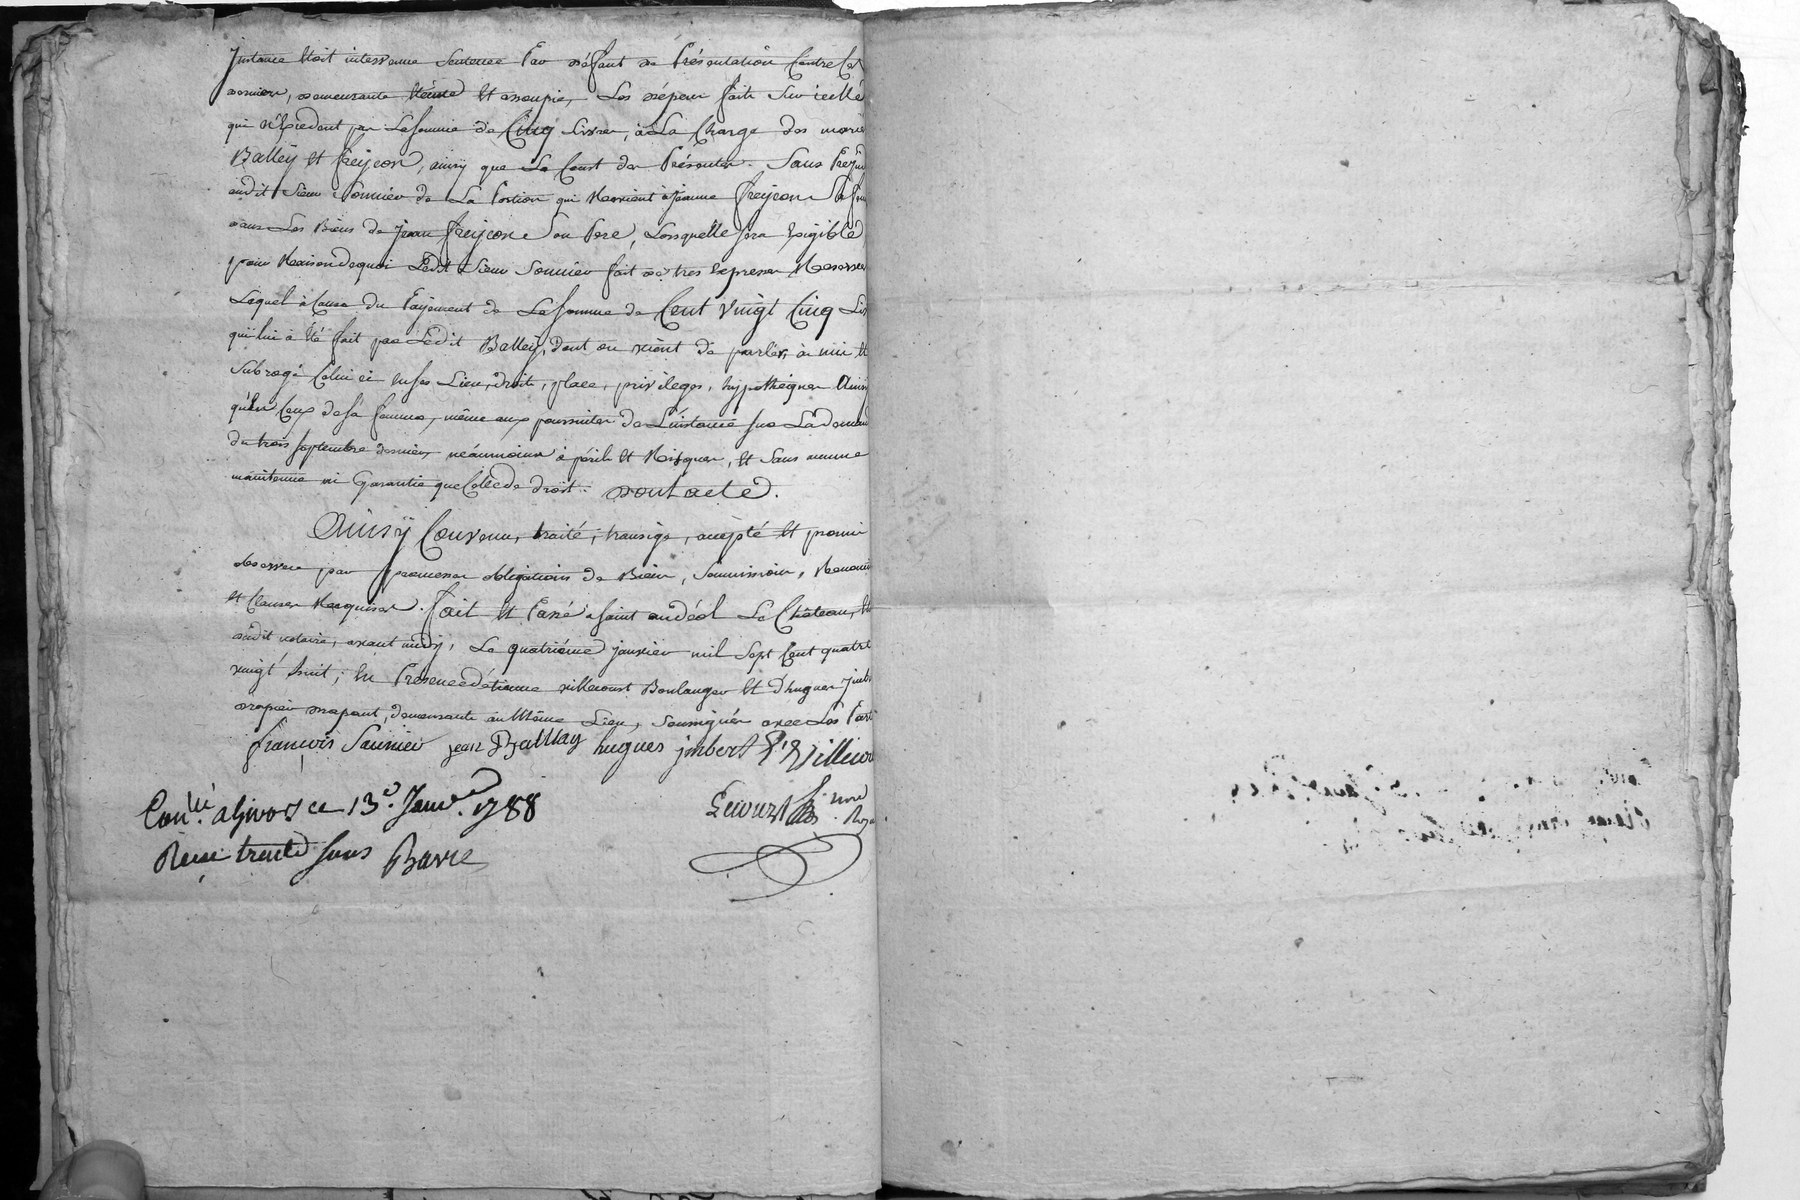 Instance étoit intervenue Sentence Par défaut de Présentation Contre Ces
derniers, demeurante éteinte et assoupie, Les dépens faits Sur icelle
qui n'Excedent pas La Somme de Cinq Livres, à La Charge des mariés
Balleÿ et freÿcon, ainsÿ que Le Cout des Présentes. Sans Prejud
audit Sieur Sonnier de La Portion qui Revient à Jeanne freÿcon Sa fem
dans Les Biens de Jean freÿcon Son Pere, Lorsquelle sera Exigible
pour Raison dequoi Ledit Sieur Sonnier fait de tres Expresses Reserves
Lequel à Cause du Paÿement de La Somme de Cent vingt Cinq Liv
qui lui à été fait par Ledit Balleÿ, dont on vient de parler, à mis et
Subrogé Celui ci en ses Lieu, droits, place, privileges, hypotheques Ainsi
qu'en Ceux de sa femme, même aux poursuites de L'instance sur La demand
du trois septembre dernier, néanmoins à périls et Risques, et Sans aucune
maintenue ni Garantie que Celle de droit. dont acte.
Ainsÿ Convenu, traité, transigé, accépté et promis
observer par promesses obligations de Biens, Soumissions, Renonci
et Clauses Requises. fait et Passé à Saint andéol Le Château,
dudit notaire, avant midÿ, Le quatriéme janvier mil Sept Cent quatre
vingt huit; En Presence d'étienne villecourt Boulanger et D'hugues Jmb
drapier drapant, demeurants au Même Lieu, Soussignés avec Les Parti
françois Saunier jean Ballay hugues jmbert E. Villecou
Con.llé à Givors ce 13.e Janv.er 1788 Lecourt
Reçu trente sous Barre